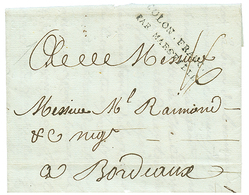 COLON. FRA
PAR MARSEILLE
Messieurs
Messieurs Ml. Raimond
& C negts
a Bordeaux